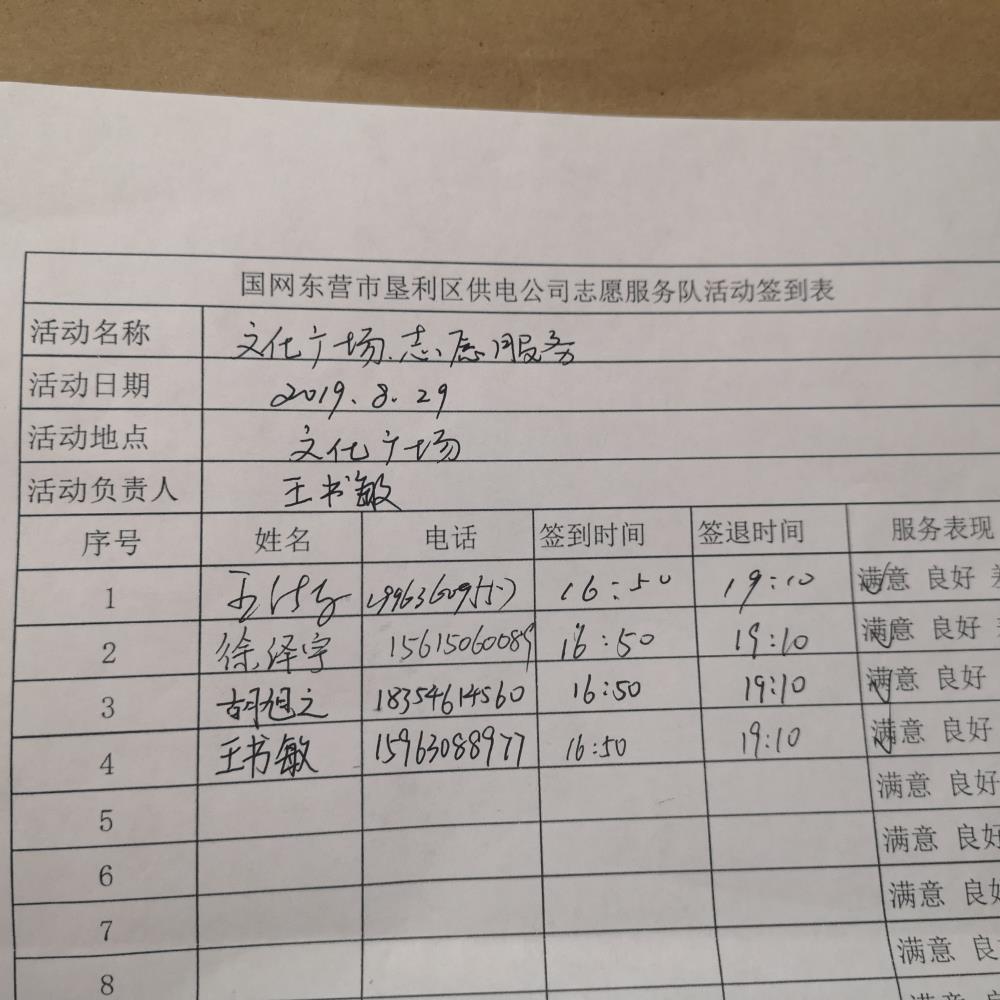 国网东营市垦利区供电公司志愿服务队活动签到表
活动名称 文化广场志愿服务
活动日期 2019.8.29
活动地点 文化广场
活动负责人 王书敏
序号 姓名 电话 签到时间 签退时间 服务表现
1 16:50 19:10 满意 良好 差
2 徐泽宇 15615060089 16:50 19:10 满意 良好
3 胡旭之 18354614560 16:50 19:10 满意 良好
4 王书敏 15963088977 16:50 19:10 满意 良好
5 满意 良好
6 满意 良好
7 满意 良好
8 满意 良
满意